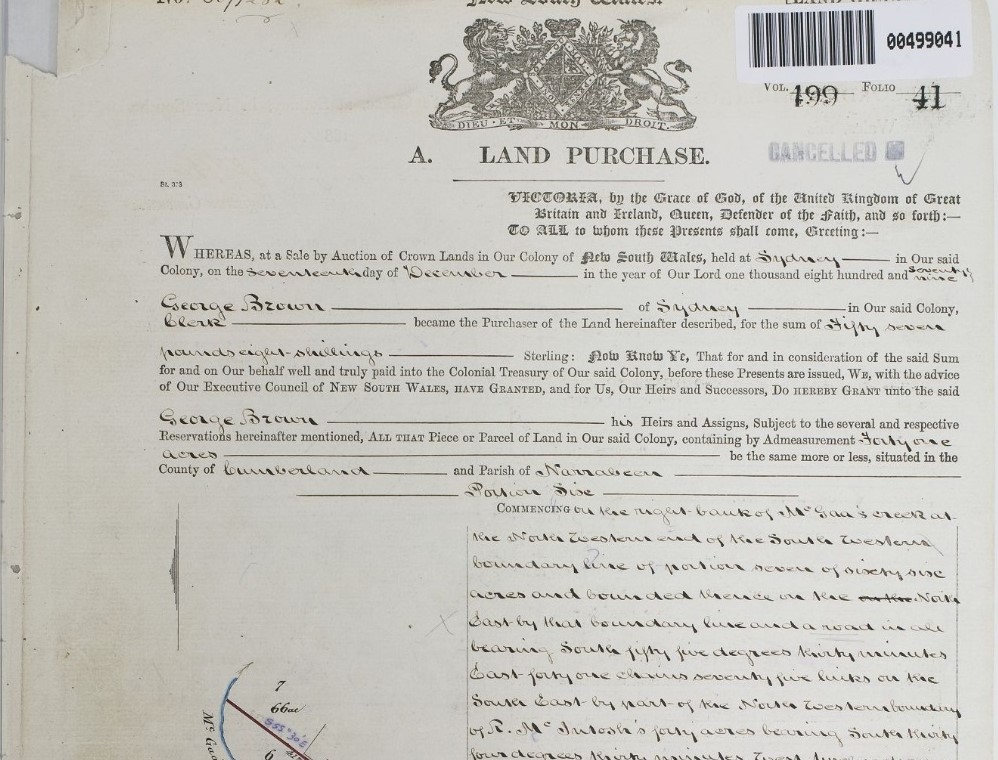 New South Wales.
00499041
VOL. 199 FOLIO 41
DIEU · ET · MON · DROIT.
CANCELLED
A. LAND PURCHASE.
VICTORIA, by the Grace of God, of the United Kingdom of Great
Britain and Ireland, Queen, Defender of the Faith, and so forth:—
TO ALL to whom these Presents shall come, Greeting:—
WHEREAS, at a Sale by Auction of Crown Lands in Our Colony of New South Wales, held at Sydney in Our said
Colony, on the Seventeenth day of December in the year of Our Lord one thousand eight hundred and seventy
nine
George Brown of Sydney in Our said Colony,
Clerk became the Purchaser of the Land hereinafter described, for the sum of Fifty seven
pounds eight shillings Sterling: Now Know Ye, That for and in consideration of the said Sum
for and on Our behalf well and truly paid into the Colonial Treasury of Our said Colony, before these Presents are issued, WE, with the advice
of Our Executive Council of NEW SOUTH WALES, HAVE GRANTED, and for Us, Our Heirs and Successors, DO HEREBY GRANT unto the said
George Brown his Heirs and Assigns, Subject to the several and respective
Reservations hereinafter mentioned, ALL THAT Piece or Parcel of Land in Our said Colony, containing by Admeasurement Forty one
acres be the same more or less, situated in the
County of Cumberland and Parish of Narrabeen
Portion Six
COMMENCING on the right bank of Mc Gaa's creek at
the North Western end of the South Western
boundary line of portion seven of sixty six
acres and bounded thence on the on the North
East by that boundary line and a road in all
bearing South fifty five degrees thirty minutes
East forty one chains seventy five links on the
South East by part of the North Western boundary
of R. Mc Intosh's forty acres bearing South thirty
four degrees thirty minutes West
7
66ac
S55°30'E
6